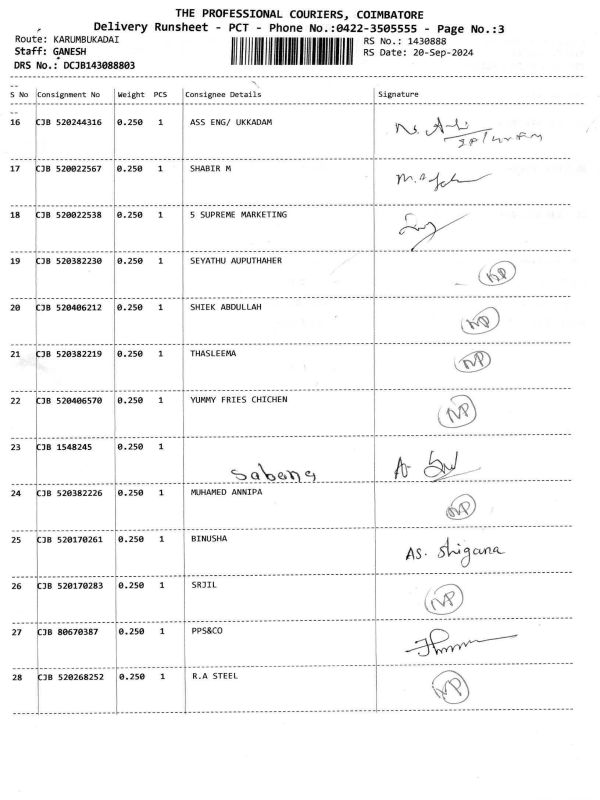 THE PROFESSIONAL COURIERS, COIMBATORE
Delivery Runsheet - PCT - Phone No.:0422-3505555 - Page No.:3
Route: KARUMBUKADAI RS No.: 1430888
Staff: GANESH RS Date: 20-Sep-2024
DRS No.: DCJB143088803
--
S No Consignment No Weight PCS Consignee Details Signature
--
16 CJB 520244316 0.250 1 ASS ENG/ UKKADAM
17 CJB 520022567 0.250 1 SHABIR M
18 CJB 520022538 0.250 1 5 SUPREME MARKETING
19 CJB 520382230 0.250 1 SEYATHU AUPUTHAHER NP
20 CJB 520406212 0.250 1 SHIEK ABDULLAH NP
21 CJB 520382219 0.250 1 THASLEEMA NP
22 CJB 520406570 0.250 1 YUMMY FRIES CHICHEN NP
23 CJB 1548245 0.250 1
Sabana
24 CJB 520382226 0.250 1 MUHAMED ANNIPA NP
25 CJB 520170261 0.250 1 BINUSHA AS. Shigana
26 CJB 520170283 0.250 1 SRJIL NP
27 CJB 80670387 0.250 1 PPS&CO
28 CJB 520268252 0.250 1 R.A STEEL NP